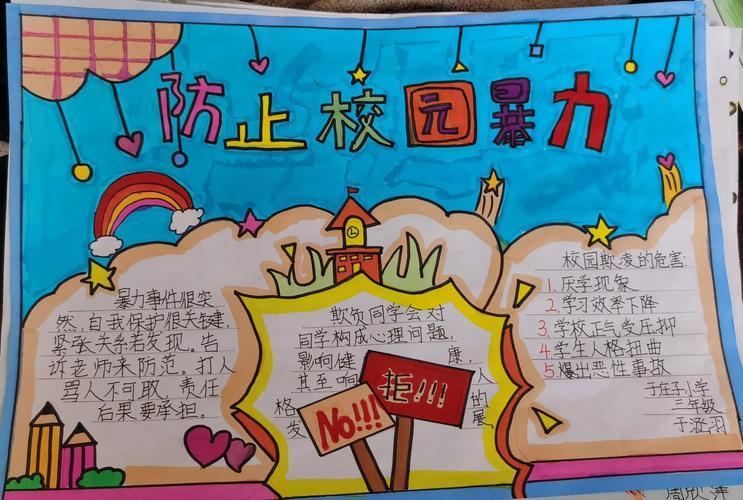 防止校园暴力
暴力事件很突
然,自我保护很关键,
紧张关系若发现。告
诉老师来防范。打人
骂人不可取,责任
后果要承担。
欺负同学会对
同学构成心理问题,
影响健康,
甚至响人
格的
发展。
拒!!!
No!!!
校园欺凌的危害:
1.厌学现象
2.学习效率下降
3.学校正气受压抑
4.学生人格扭曲
5.爆出恶性事故
于庄子小学
三年级
于涵羽